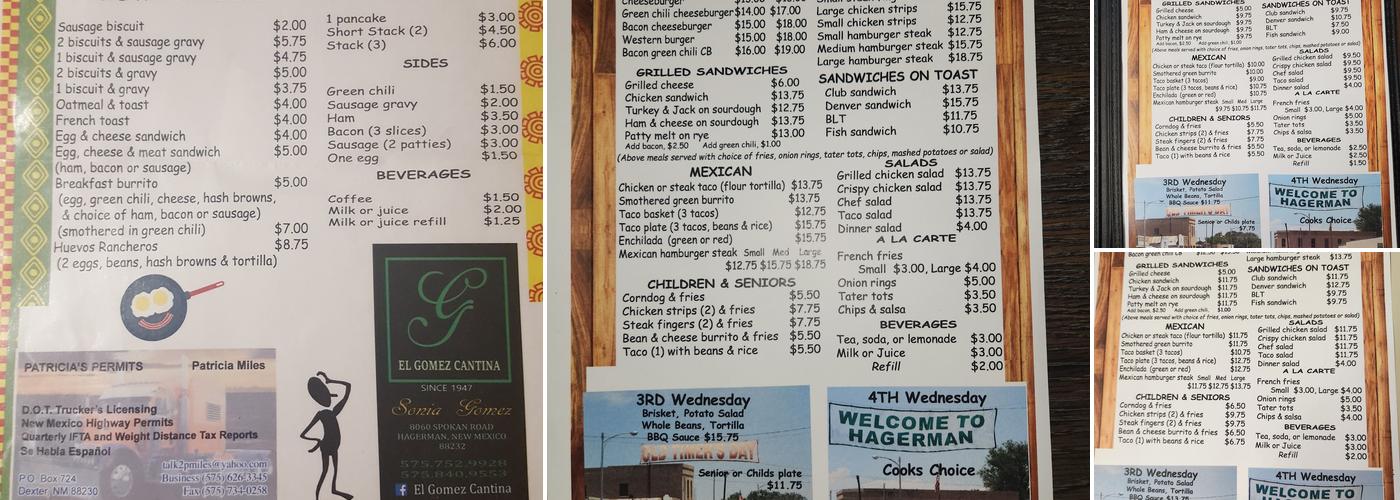 Sausage biscuit $2.00
2 biscuits & sausage gravy $5.75
1 biscuit & sausage gravy $4.75
2 biscuits & gravy $5.00
1 biscuit & gravy $3.75
Oatmeal & toast $4.00
French toast $4.00
Egg & cheese sandwich $4.00
Egg, cheese & meat sandwich $5.00
(ham, bacon or sausage)
Breakfast burrito $5.00
(egg, green chili, cheese, hash browns,
& choice of ham, bacon or sausage)
(smothered in green chili) $7.00
Huevos Rancheros $8.75
(2 eggs, beans, hash browns & tortilla)
1 pancake $3.00
Short Stack (2) $4.50
Stack (3) $6.00
SIDES
Green chili $1.50
Sausage gravy $2.00
Ham $3.50
Bacon (3 slices) $3.00
Sausage (2 patties) $3.00
One egg $1.50
BEVERAGES
Coffee $1.50
Milk or juice $2.00
Milk or juice refill $1.25
PATRICIA'S PERMITS Patricia Miles
D.O.T. Trucker's Licensing
New Mexico Highway Permits
Quarterly IFTA and Weight Distance Tax Reports
Se Habla Español
talk2pmiles@yahoo.com
P O Box 724 Business (575) 626-3345
Dexter, NM 88230 Fax (575) 734-0258
G
EL GOMEZ CANTINA
SINCE 1947
Sonia Gomez
8060 SPOKAN ROAD
HAGERMAN, NEW MEXICO
88232
575.752.9928
575.840.9553
El Gomez Cantina
Cheeseburger
Green chili cheeseburger $14.00 $17.00
Bacon cheeseburger $15.00 $18.00
Western burger $15.00 $18.00
Bacon green chili CB $16.00 $19.00
GRILLED SANDWICHES
Grilled cheese $6.00
Chicken sandwich $13.75
Turkey & Jack on sourdough $12.75
Ham & cheese on sourdough $13.75
Patty melt on rye $13.00
Add bacon, $2.50 Add green chili, $1.00
Large chicken strips $15.75
Small chicken strips $12.75
Small hamburger steak $12.75
Medium hamburger steak $15.75
Large hamburger steak $18.75
SANDWICHES ON TOAST
Club sandwich $13.75
Denver sandwich $15.75
BLT $11.75
Fish sandwich $10.75
(Above meals served with choice of fries, onion rings, tater tots, chips, mashed potatoes or salad)
MEXICAN
Chicken or steak taco (flour tortilla) $13.75
Smothered green burrito $13.75
Taco basket (3 tacos) $12.75
Taco plate (3 tacos, beans & rice) $15.75
Enchilada (green or red) $15.75
Mexican hamburger steak Small Med Large
$12.75 $15.75 $18.75
CHILDREN & SENIORS
Corndog & fries $5.50
Chicken strips (2) & fries $7.75
Steak fingers (2) & fries $7.75
Bean & cheese burrito & fries $5.50
Taco (1) with beans & rice $5.50
SALADS
Grilled chicken salad $13.75
Crispy chicken salad $13.75
Chef salad $13.75
Taco salad $13.75
Dinner salad $4.00
A LA CARTE
French fries
Small $3.00, Large $4.00
Onion rings $5.00
Tater tots $3.50
Chips & salsa $3.50
BEVERAGES
Tea, soda, or lemonade $3.00
Milk or Juice $3.00
Refill $2.00
3RD Wednesday
Brisket, Potato Salad
Whole Beans, Tortilla
BBQ Sauce $15.75
OLD TIMER'S DAY
Senior or Childs plate
$11.75
4TH Wednesday
WELCOME TO
HAGERMAN
Cooks Choice
GRILLED SANDWICHES
Grilled cheese $5.00
Chicken sandwich $9.75
Turkey & Jack on sourdough $9.75
Ham & cheese on sourdough $9.75
Patty melt on rye $9.75
Add bacon, $2.50 Add green chili, $1.00
SANDWICHES ON TOAST
Club sandwich $9.75
Denver sandwich $10.75
BLT $7.50
Fish sandwich $9.00
(Above meals served with choice of fries, onion rings, tater tots, chips, mashed potatoes or salad)
MEXICAN
Chicken or steak taco (flour tortilla) $10.00
Smothered green burrito $10.00
Taco basket (3 tacos) $9.00
Taco plate (3 tacos, beans & rice) $10.75
Enchilada (green or red) $10.75
Mexican hamburger steak Small Med Large
$9.75 $10.75 $11.75
CHILDREN & SENIORS
Corndog & fries $5.50
Chicken strips (2) & fries $7.75
Steak fingers (2) & fries $7.75
Bean & cheese burrito & fries $5.50
Taco (1) with beans & rice $5.50
SALADS
Grilled chicken salad $9.50
Crispy chicken salad $9.50
Chef salad $9.50
Taco salad $9.50
Dinner salad $4.00
A LA CARTE
French fries
Small $3.00, Large $4.00
Onion rings $5.00
Tater tots $3.50
Chips & salsa $3.50
BEVERAGES
Tea, soda, or lemonade $2.50
Milk or Juice $2.50
Refill $1.50
3RD Wednesday
Brisket, Potato Salad
Whole Beans, Tortilla
BBQ Sauce $11.75
Senior or Childs plate
$7.75
4TH Wednesday
WELCOME TO
HAGERMAN
Cooks Choice
Bacon green chili CB $16.00 $19.00
Large hamburger steak $13.75
GRILLED SANDWICHES
Grilled cheese $5.00
Chicken sandwich $11.75
Turkey & Jack on sourdough $11.75
Ham & cheese on sourdough $11.75
Patty melt on rye $11.00
Add bacon, $2.50 Add green chili, $1.00
SANDWICHES ON TOAST
Club sandwich $11.75
Denver sandwich $12.75
BLT $9.75
Fish sandwich $9.75
(Above meals served with choice of fries, onion rings, tater tots, chips, mashed potatoes or salad)
MEXICAN
Chicken or steak taco (flour tortilla) $11.75
Smothered green burrito $11.75
Taco basket (3 tacos) $10.75
Taco plate (3 tacos, beans & rice) $12.75
Enchilada (green or red) $12.75
Mexican hamburger steak Small Med Large
$11.75 $12.75 $13.75
CHILDREN & SENIORS
Corndog & fries $6.50
Chicken strips (2) & fries $9.75
Steak fingers (2) & fries $9.75
Bean & cheese burrito & fries $6.50
Taco (1) with beans & rice $6.75
SALADS
Grilled chicken salad $11.75
Crispy chicken salad $11.75
Chef salad $11.75
Taco salad $11.75
Dinner salad $4.00
A LA CARTE
French fries
Small $3.00, Large $4.00
Onion rings $5.00
Tater tots $3.50
Chips & salsa $4.00
BEVERAGES
Tea, soda, or lemonade $3.00
Milk or Juice $3.00
Refill $2.00
3RD Wednesday
Brisket, Potato Salad
Whole Beans, Tortilla
BBQ Sauce $13.75
4TH Wednesday
WELCOME TO